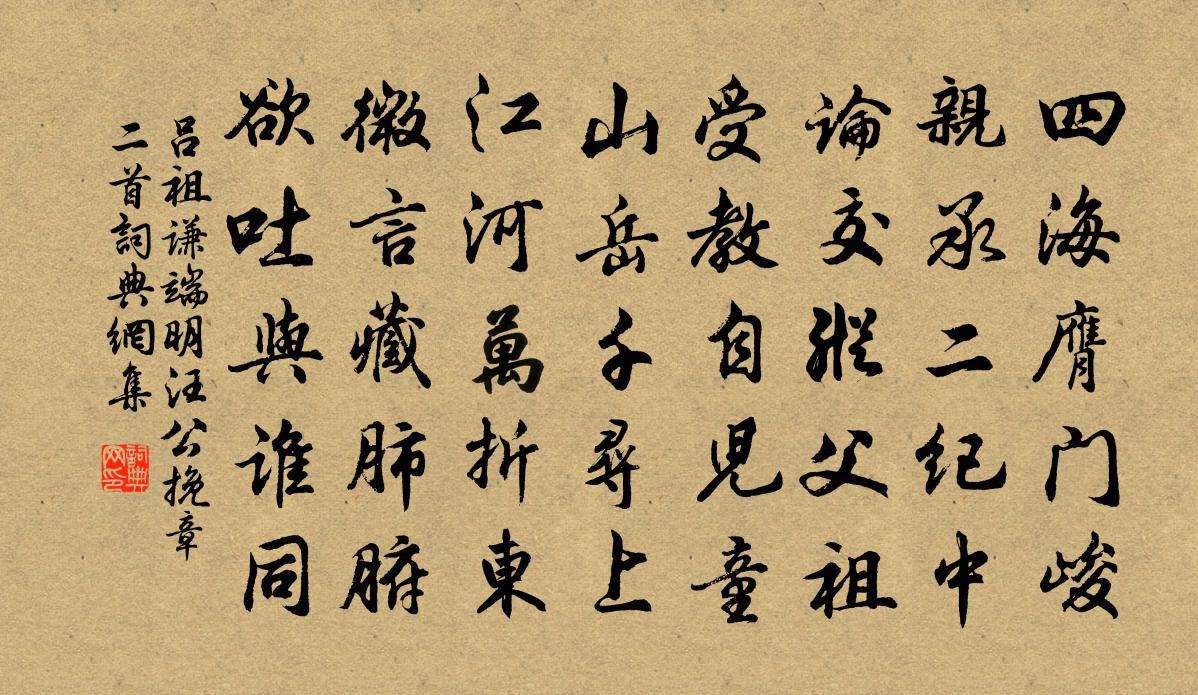 四海膺门峻
親承二纪中
論交從父祖
受教自児童
山岳千尋上
江河萬折東
微言藏肺腑
欲吐與谁同
吕祖谦端明汪公挽章
二首詞典網集
詞典网印